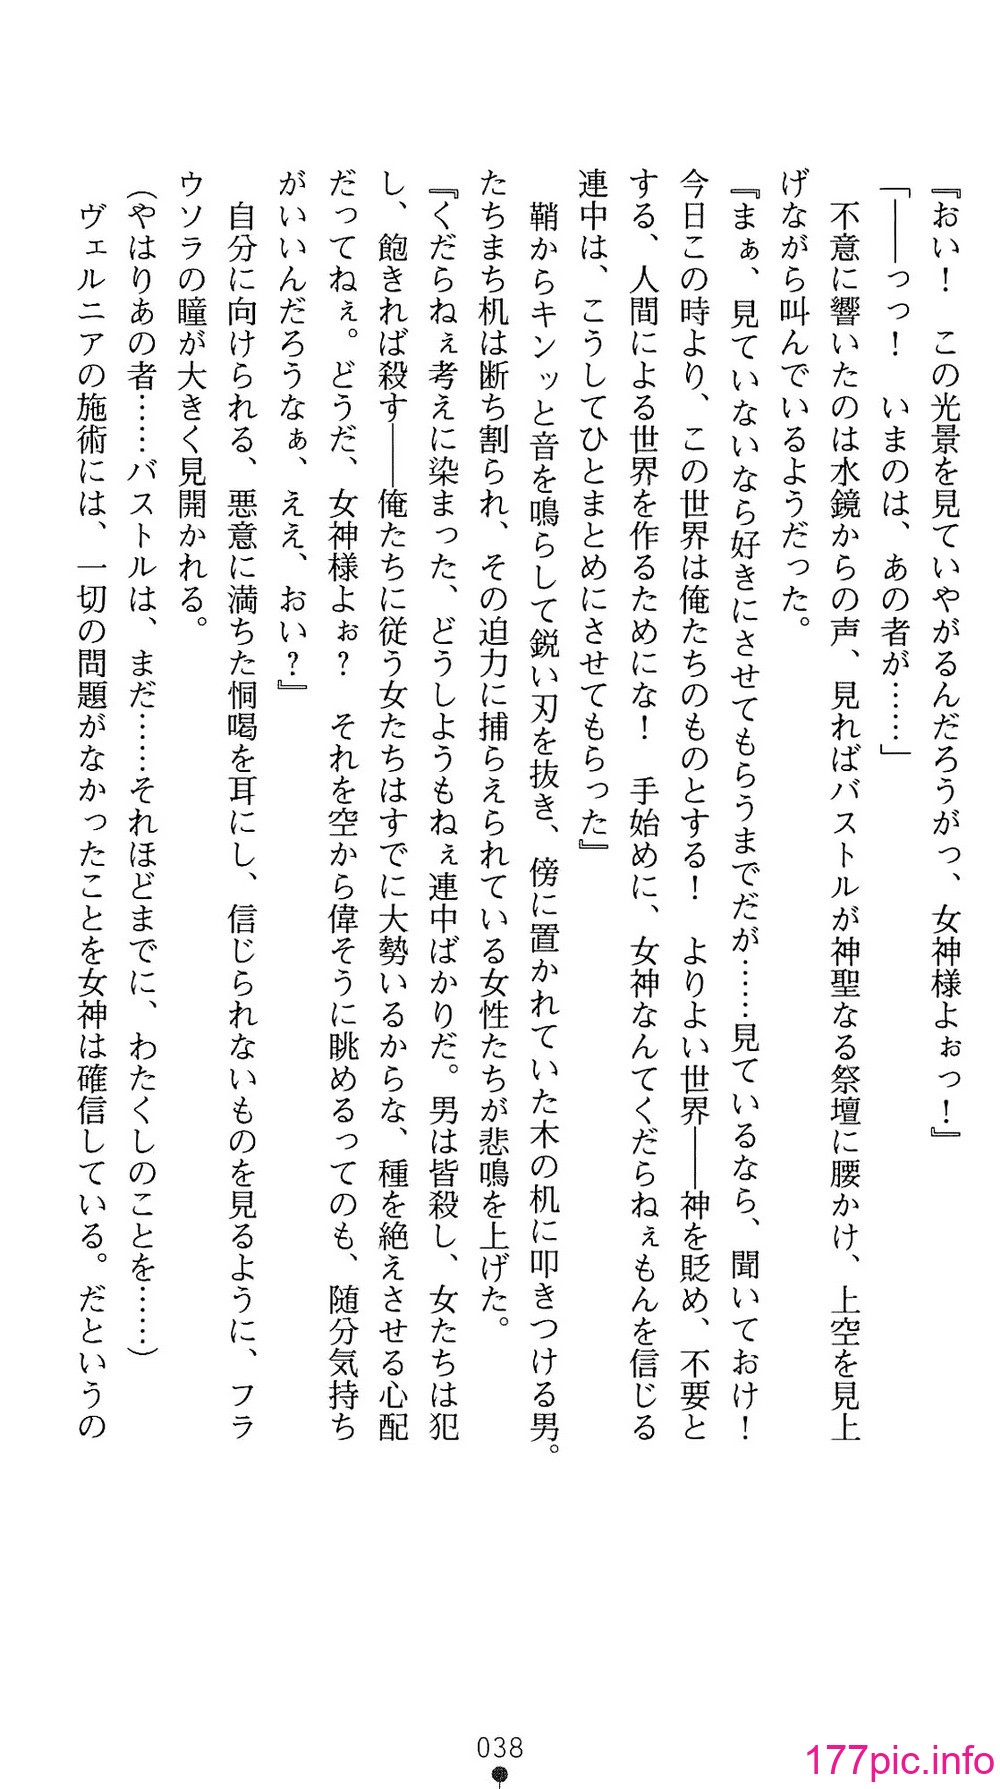 『おい！　この光景を見ていやがるんだろうがっ、女神様よぉっ！』
「――っっ！　いまのは、あの者が……」
　不意に響いたのは水鏡からの声、見ればバストルが神聖なる祭壇に腰かけ、上空を見上
げながら叫んでいるようだった。
『まぁ、見ていないなら好きにさせてもらうまでだが……見ているなら、聞いておけ！
今日この時より、この世界は俺たちのものとする！　よりよい世界――神を貶め、不要と
する、人間による世界を作るためにな！　手始めに、女神なんてくだらねぇもんを信じる
連中は、こうしてひとまとめにさせてもらった』
　鞘からキンッと音を鳴らして鋭い刃を抜き、傍に置かれていた木の机に叩きつける男。
たちまち机は断ち割られ、その迫力に捕らえられている女性たちが悲鳴を上げた。
『くだらねぇ考えに染まった、どうしようもねぇ連中ばかりだ。男は皆殺し、女たちは犯
し、飽きれば殺す――俺たちに従う女たちはすでに大勢いるからな、種を絶えさせる心配
だってねぇ。どうだ、女神様よぉ？　それを空から偉そうに眺めるってのも、随分気持ち
がいいんだろうなぁ、ええ、おい？』
　自分に向けられる、悪意に満ちた恫喝を耳にし、信じられないものを見るように、フラ
ウソラの瞳が大きく見開かれる。
（やはりあの者……バストルは、まだ……それほどまでに、わたくしのことを……）
　ヴェルニアの施術には、一切の問題がなかったことを女神は確信している。だというの
038
177pic.info